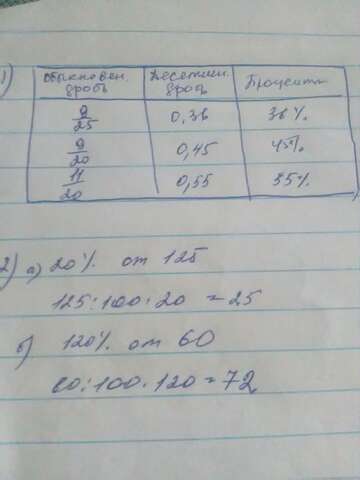 1)
Обыкновен. дробь Десятичн. дробь Проценты
9/25 0,36 36%
9/20 0,45 45%
11/20 0,55 55%
2) а) 20% от 125
125:100·20 = 25
б) 120% от 60
60:100·120 = 72